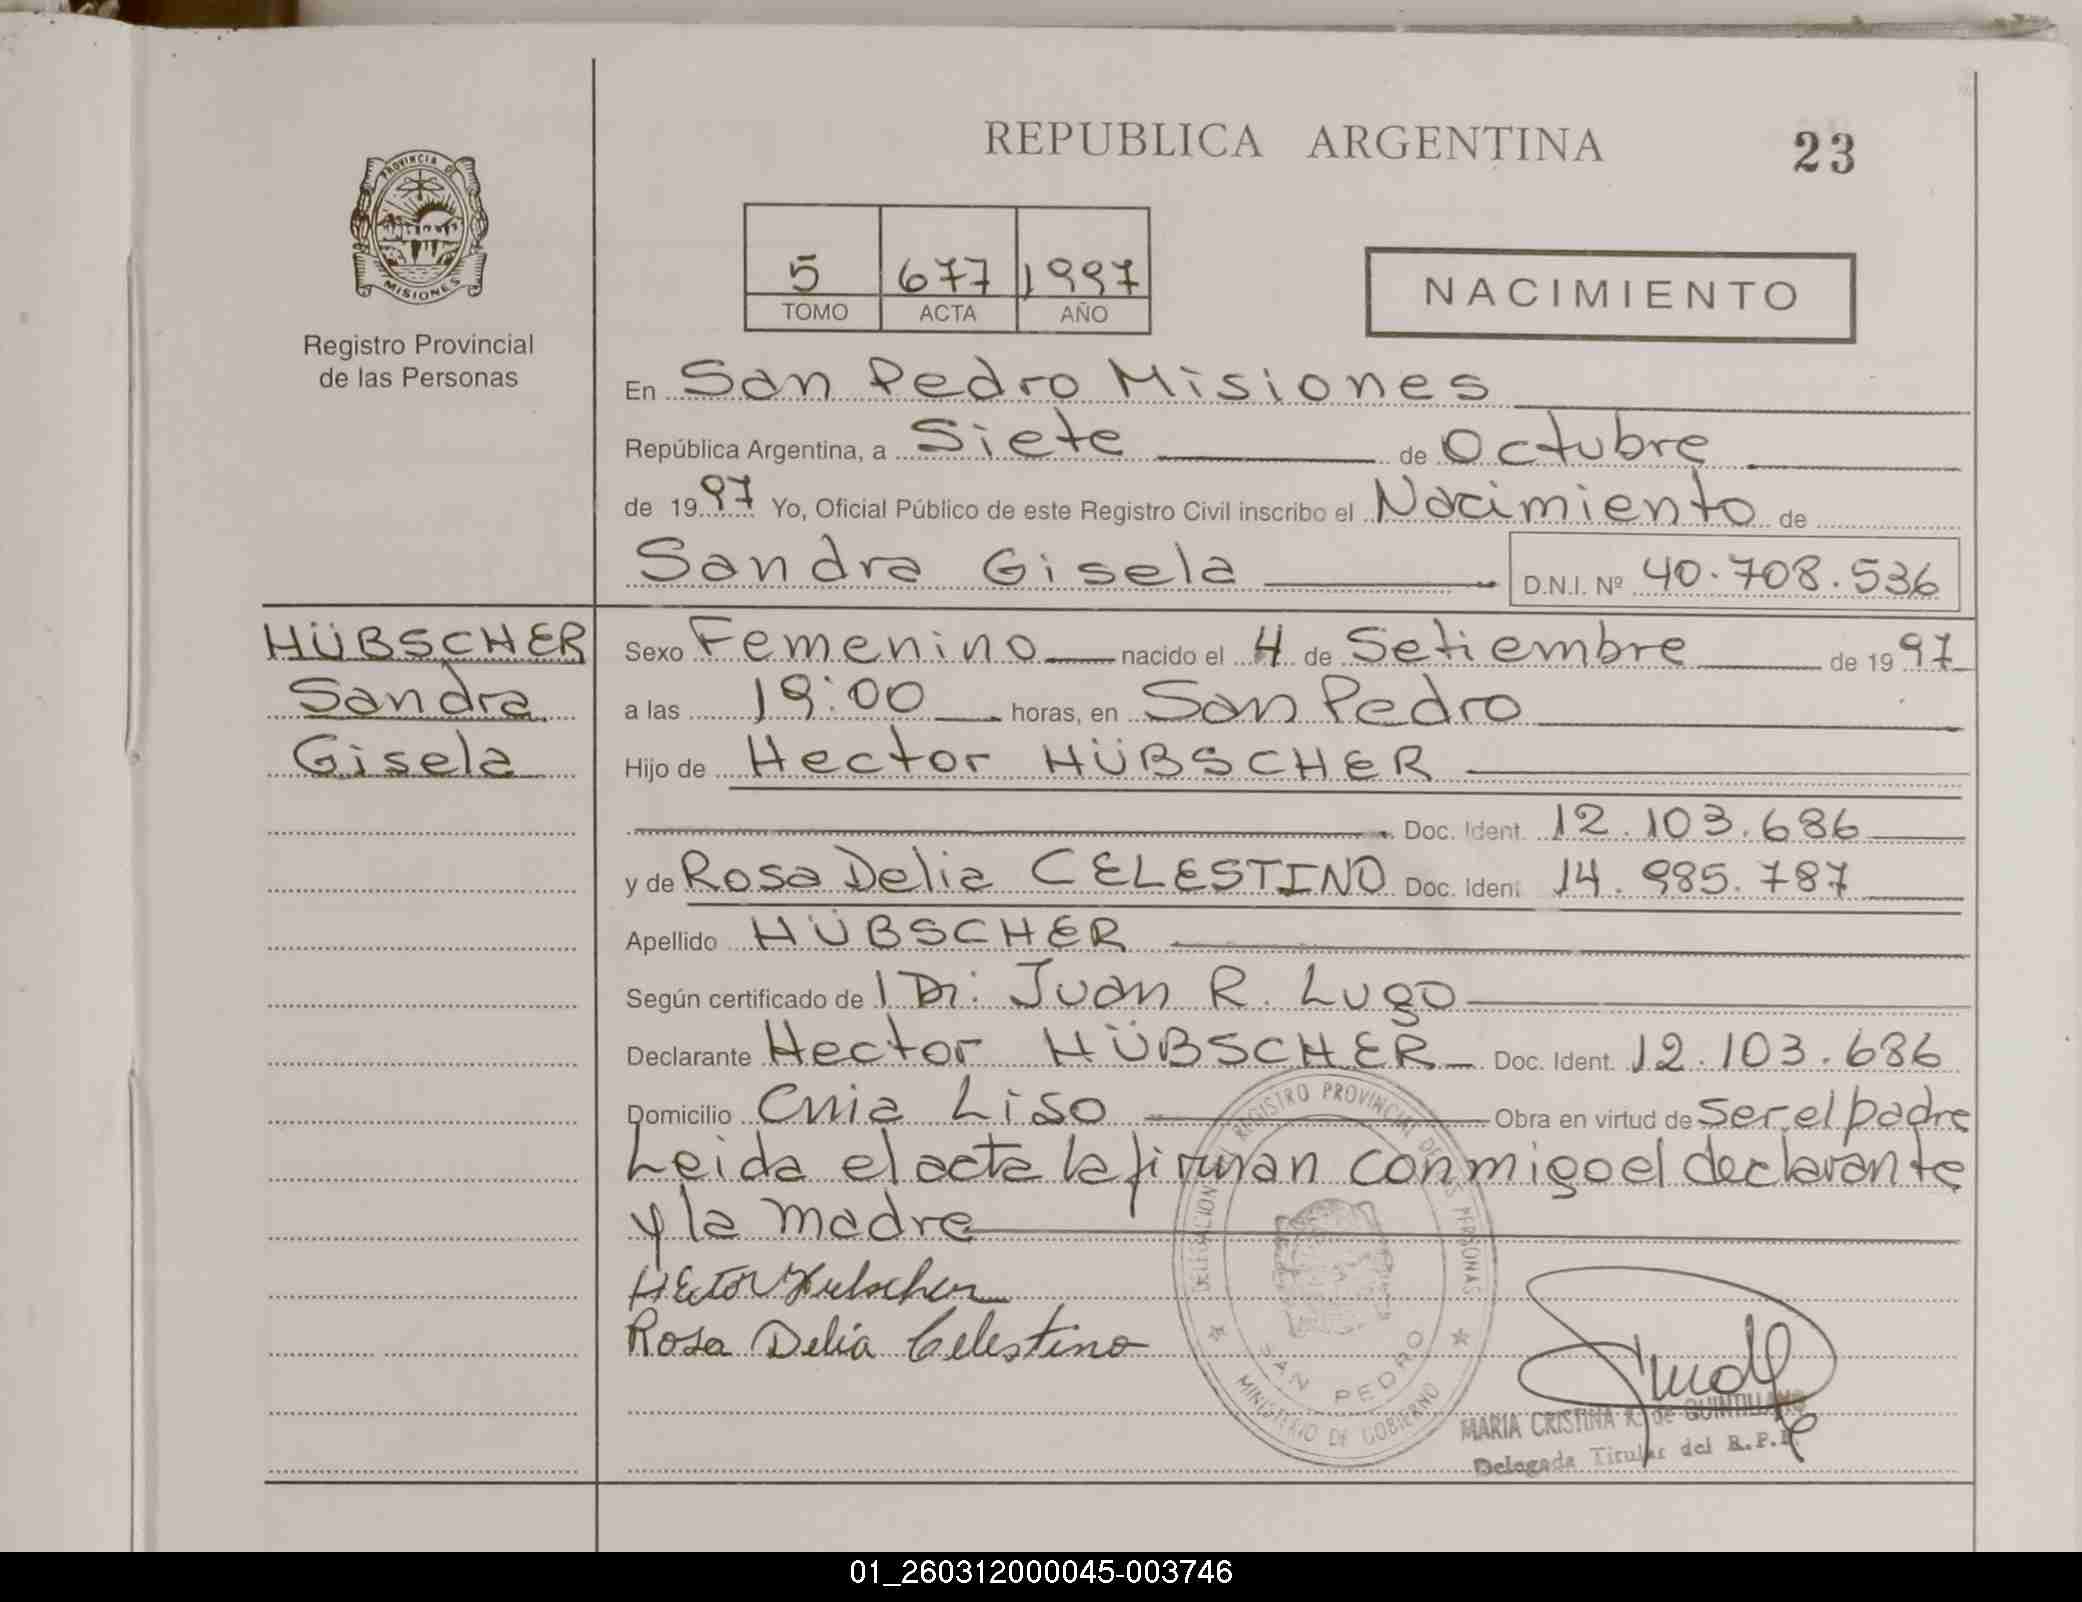 REPUBLICA ARGENTINA
23
PROVINCIA DE
MISIONES
Registro Provincial
de las Personas
5 677 1997
TOMO ACTA AÑO
NACIMIENTO
En San Pedro Misiones
República Argentina, a Siete de Octubre
de 1997 Yo, Oficial Público de este Registro Civil inscribo el Nacimiento de
Sandra Gisela D.N.I. Nº 40.708.536
HÜBSCHER
Sandra
Gisela
Sexo Femenino nacido el 4 de Setiembre de 1997
a las 19:00 horas, en San Pedro
Hijo de Hector HÜBSCHER
Doc. Ident. 12.103.686
y de Rosa Delia CELESTINO Doc. Ident 14.985.787
Apellido HÜBSCHER
Según certificado de Dr. Juan R. Lugo
Declarante Hector HÜBSCHER Doc. Ident. 12.103.686
Domicilio Cnia Liso Obra en virtud de ser el padre
Leida el acta la firman conmigo el declarante
y la madre
Hector Hubscher
Rosa Delia Celestino
DELEGACION DEL REGISTRO PROVINCIAL DE LAS PERSONAS
SAN PEDRO
MINISTERIO DE GOBIERNO
MARIA CRISTINA R. de QUINTILLANO
Delegada Titular del R.P.P.
01_260312000045-003746